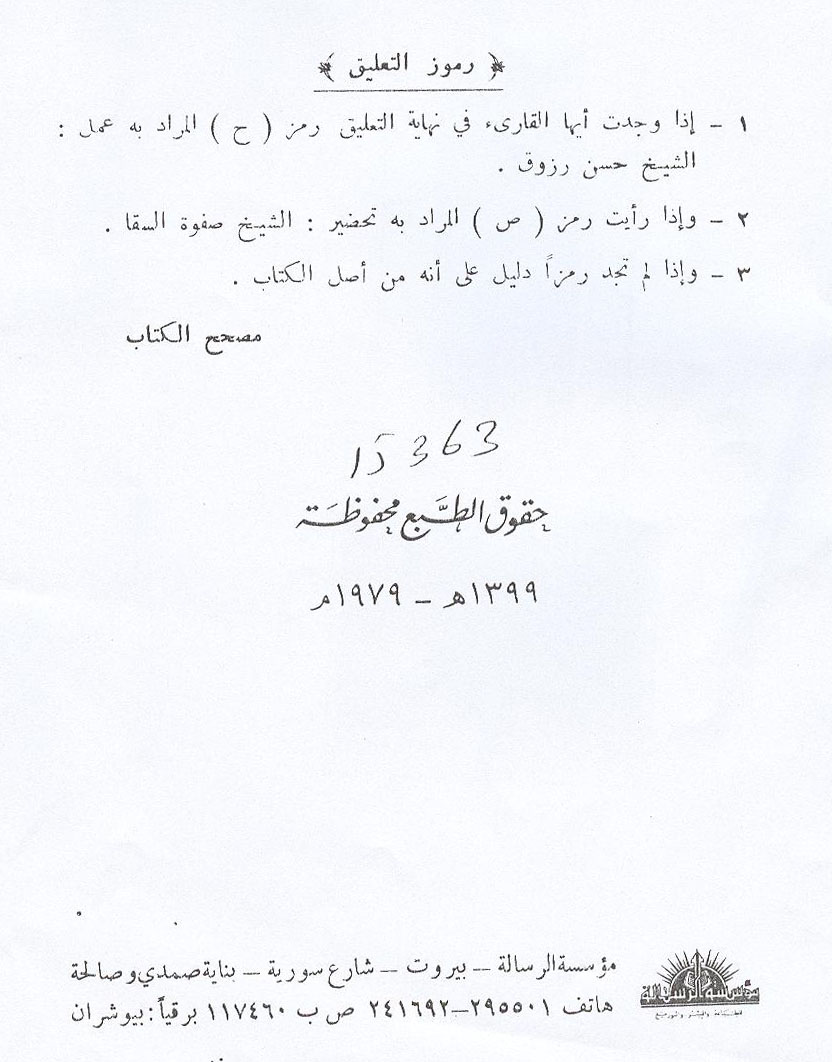 ﴿ رموز التعليق ﴾
١ – إذا وجدت أيها القارىء في نهاية التعليق رمز ( ح ) المراد به عمل :
الشيخ حسن رزوق .
٢ – وإذا رأيت رمز ( ص ) المراد به تحضير : الشيخ صفوة السقا .
٣ – وإذا لم تجد رمزاً دليل على أنه من أصل الكتاب .
مصحح الكتاب
363
حقوق الطبع محفوظة
١٣٩٩هـ – ١٩٧٩م
مؤسسة الرسالة – بيروت – شارع سورية – بناية صمدي وصالحة
هاتف ٢٩٥٥٠١–٢٤١٦٩٢ ص ب ١١٧٤٦٠ برقياً : بيوشران
مؤسسة الرسالة
للطباعة والنشر والتوزيع